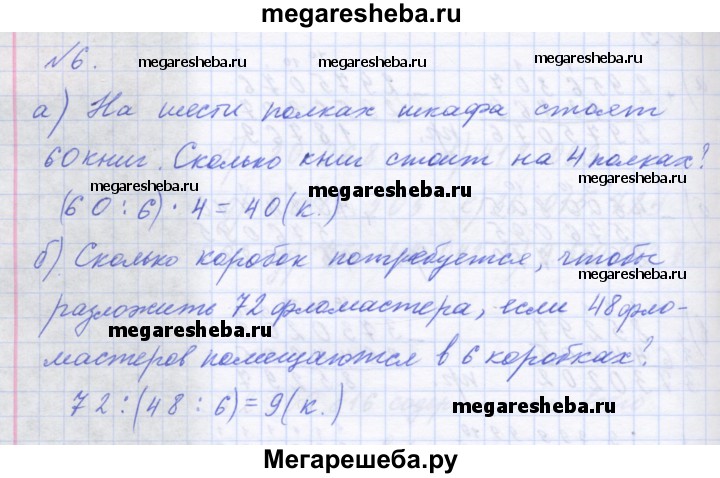 megaresheba.ru
№6. megaresheba.ru megaresheba.ru
а) На шести полках шкафа стоят
60 книг. Сколько книг стоит на 4 полках?
megaresheba.ru megaresheba.ru
(60 : 6) · 4 = 40 (к.)
megaresheba.ru
б) Сколько коробок потребуется, чтобы
megaresheba.ru
разложить 72 фломастера, если 48 фло-
megaresheba.ru
мастеров помещаются в 6 коробках?
72 : (48 : 6) = 9 (к.)
megaresheba.ru
Мегарешеба.ру